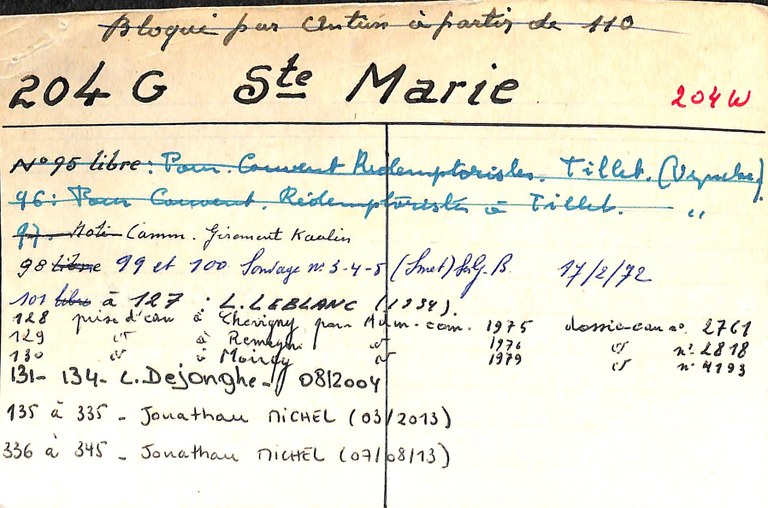 Bloqué par Antun à partir de 110
204 G Ste Marie 204 W
N° 95 libre: Pour Couvent Rédemptoristes. Tillet.
96: Pour Couvent. Rédemptoristes à Tillet. "
97. Noti Camm. Gisement Kaolin
98 libre 99 et 100 Sondage n° 3-4-5 (Smet) S.G.B. 17/2/72
101 libre à 127 : L. LEBLANC (1934).
128 prise d'eau à Chevigny par Adm. com. 1975 dossier eau n° 2761
129 " à Remagne " 1976 " n° 2818
130 " à Moircy " 1979 " n° 4193
131- 134- L. Dejonghe - 08/2004
135 à 335 - Jonathan MICHEL (03/2013)
336 à 345 - Jonathan MICHEL (07/08/13)